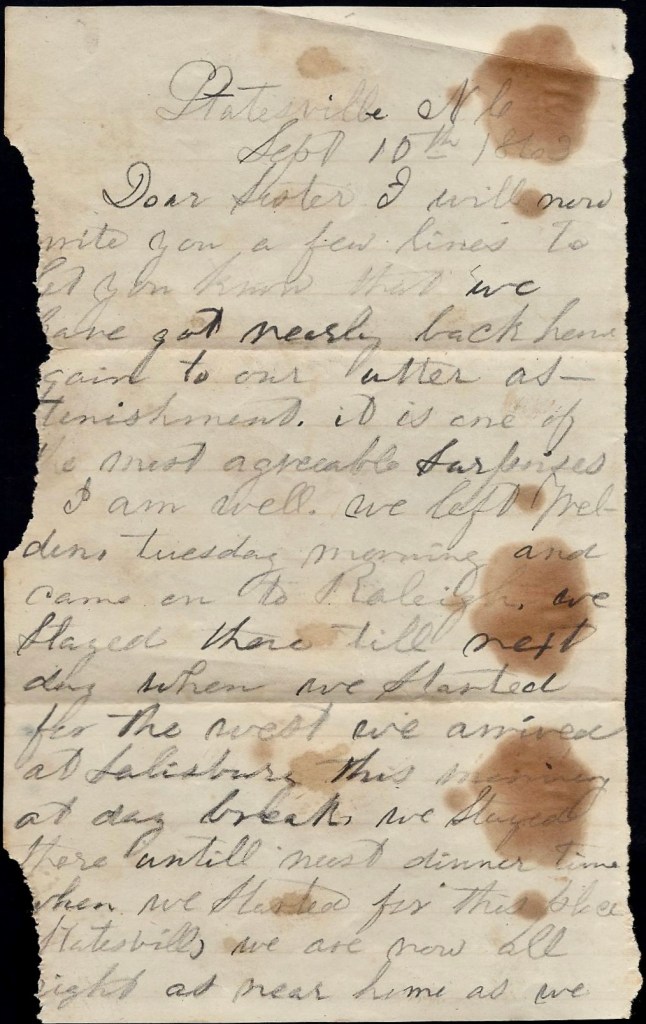 Statesville N C
Sept 10th 1863
Dear Sister I will now
write you a few lines to
let you know that we
have got nearly back home
gain to our utter as-
tenishment. it is one of
the most agreeable Surprises
I am well. we left Wel-
don, tuesday morning and
came on to Raleigh. we
Stayed there till next
day when we Started
for the west we arrived
at Salisbury this morning
at day break, we Stayed
there untill near dinner time
when we Started for this place
Statesville, we are now all
right as near home as we